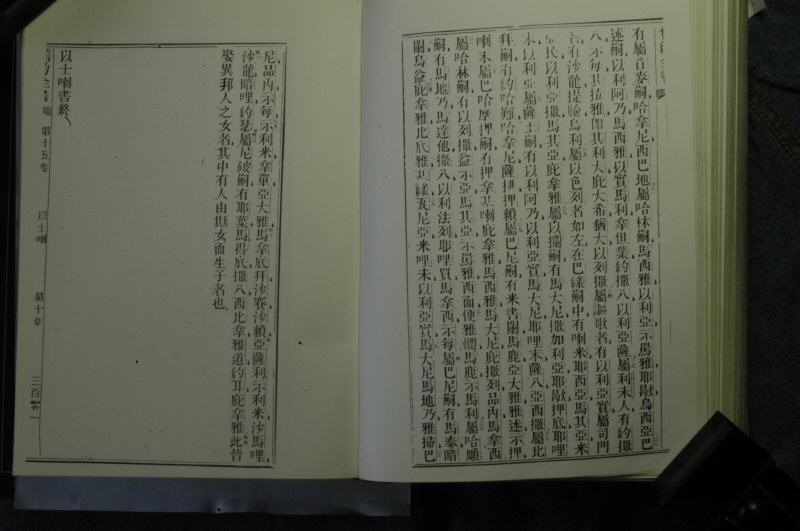 有屬音麥嗣哈拿尼西巴地屬哈林嗣馬西雅以利亞示馬雅耶歇烏西亞巴
述嗣以利阿乃馬西雅以實馬利拿但業約撒八以利亞薩屬利未人有約撒
八示每其拉雅即其利大庇大希猶大以列撒屬謳歌者有以利亞實屬司門
者有沙龍提臉烏利屬以色列者如左在巴錄嗣中有喇米耶西亞馬其亞米
民以利亞撒馬其亞庇拿雅屬以攔嗣有馬大尼撒加利亞耶歇押底耶哩
末以利亞屬薩土嗣有以利阿乃以利亞實馬大尼耶哩末薩八亞西撒屬比
拜嗣有約哈難哈拿尼薩押押賴屬巴尼嗣有米書闌馬鹿亞大雅雅述示押
喇末屬巴哈摩押嗣有押拿其喇庇拿雅馬西雅馬大尼庇撒列品內馬拿西
屬哈林嗣有以列撒益示亞馬其亞示馬雅西面便雅憫馬鹿示馬利屬哈順
嗣有馬地乃馬達他撒八以利法列耶哩買馬拿西示每屬巴尼嗣有馬泰暗
闌烏益庇拿雅比底雅其祿瓦尼亞米哩末以利亞實馬大尼馬地乃雅掃巴
尼品內示每示利米拿單亞大雅馬拿底拜沙賽沙賴亞薩利示利米沙馬哩
沙龍暗哩約瑟屬尼破嗣有耶葉馬得底撒八西比拿雅道約耳庇拿雅此皆
娶異邦人之女者其中有人由斯女而生子者也
以士喇書終
舊約全書 第十五卷 以士喇 第十章 三百